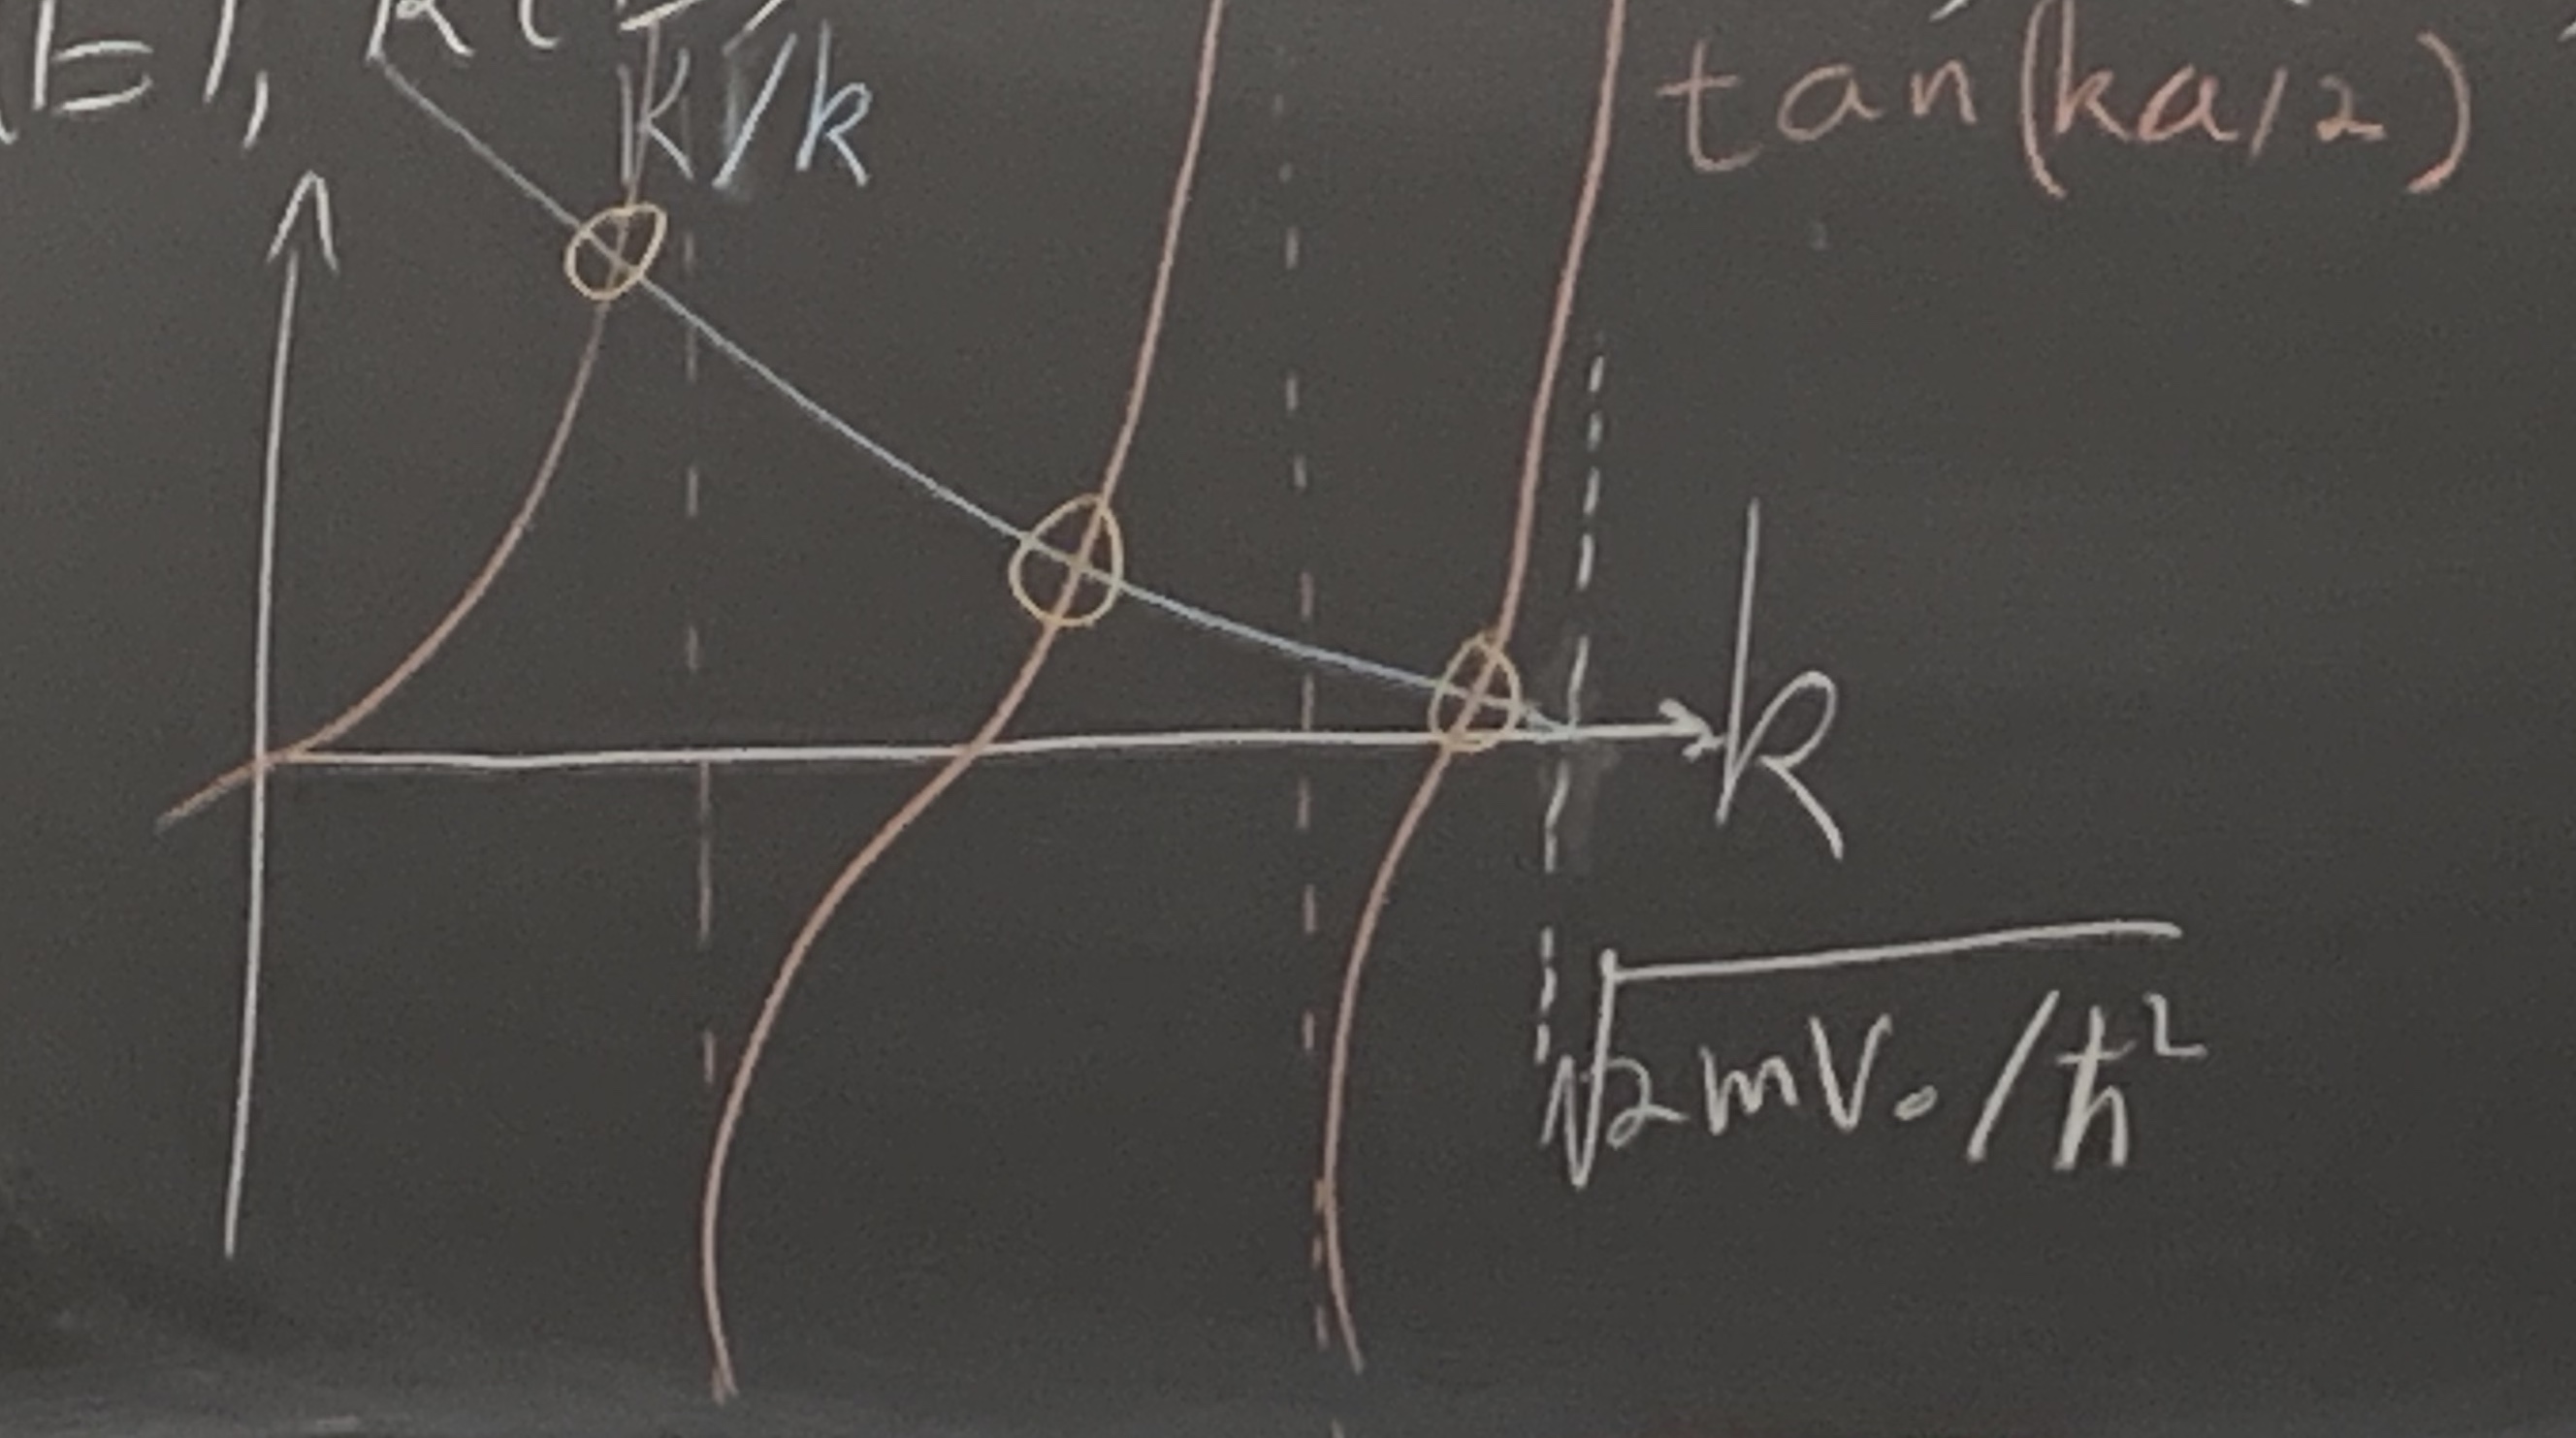 E),
K/k
tan(ka/2)
k
√2mV₀/ħ²